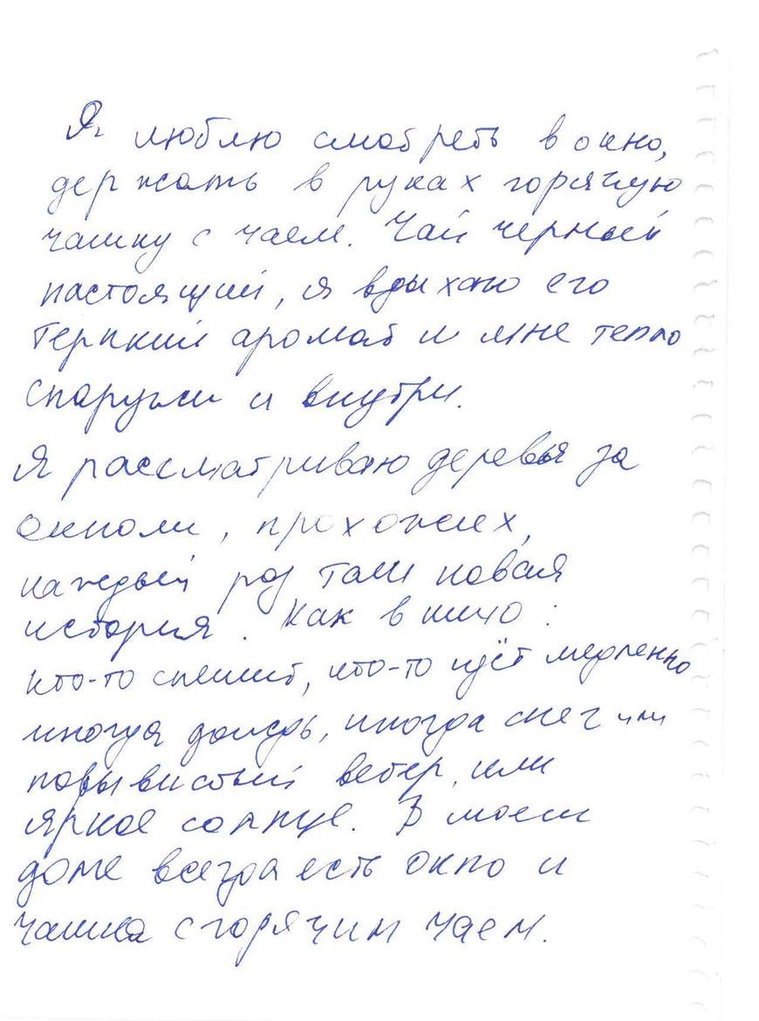 Я люблю смотреть в окно,
держать в руках горячую
чашку с чаем. Чай черный
настоящий, я вдыхаю его
терпкий аромат и мне тепло
снаружи и внутри.
Я рассматриваю деревья за
окном, прохожих,
каждый раз там новая
история. Как в кино:
кто-то спешит, кто-то идёт медленно
иногда дождь, иногда снег или
порывистый ветер, или
яркое солнце. В моем
доме всегда есть окно и
чашка с горячим чаем.